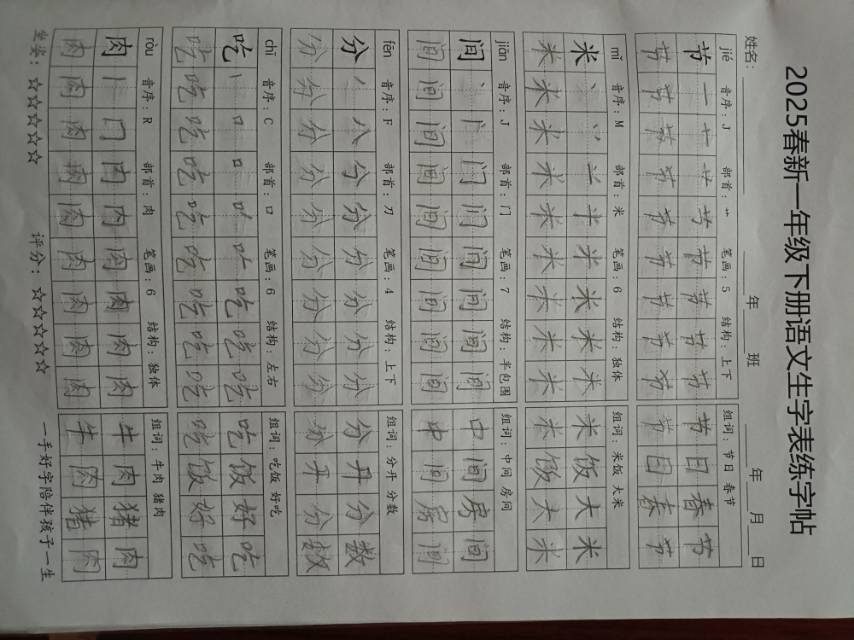 2025春新一年级下册语文生字表练字帖
姓名: 年 班 年 月 日
jié 音序: J 部首: 艹 笔画: 5 结构: 上下 组词: 节日 春节
节 一 十 艹 节 节 节 节 节 节日春节
节 节 节 节 节 节 节 节 节日春节
mǐ 音序: M 部首: 米 笔画: 6 结构: 独体 组词: 米饭 大米
米 丶 丷 半 米 米 米 米 米饭大米
米 米 米 米 米 米 米 米 米饭大米
jiān 音序: J 部首: 门 笔画: 7 结构: 半包围 组词: 中间 房间
间 丶 门 门 间 间 间 间 中间房间
间 间 间 间 间 间 间 间 中间房间
fēn 音序: F 部首: 刀 笔画: 4 结构: 上下 组词: 分开 分数
分 丿 八 分 分 分 分 分 分 分开分数
分 分 分 分 分 分 分 分 分开分数
chī 音序: C 部首: 口 笔画: 6 结构: 左右 组词: 吃饭 好吃
吃 丨 口 口 吃 吃 吃 吃 吃饭好吃
吃 吃 吃 吃 吃 吃 吃 吃 吃饭好吃
ròu 音序: R 部首: 肉 笔画: 6 结构: 独体 组词: 牛肉 猪肉
肉 丨 冂 内 肉 肉 肉 肉 牛肉猪肉
肉 肉 肉 肉 肉 肉 肉 肉 牛肉猪肉
坐姿: ☆☆☆☆☆ 评分: ☆☆☆☆☆ 一手好字陪伴孩子一生